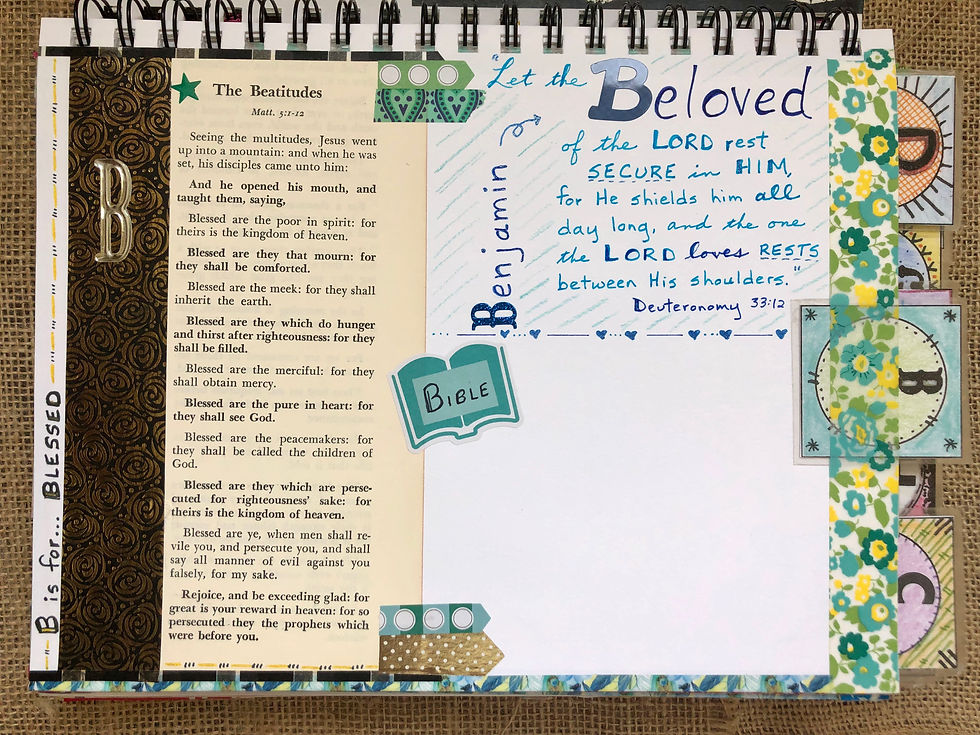 B is for... BLESSED
B
The Beatitudes
Matt. 5:1-12
Seeing the multitudes, Jesus went
up into a mountain: and when he was
set, his disciples came unto him:
And he opened his mouth, and
taught them, saying,
Blessed are the poor in spirit: for
theirs is the kingdom of heaven.
Blessed are they that mourn: for
they shall be comforted.
Blessed are the meek: for they shall
inherit the earth.
Blessed are they which do hunger
and thirst after righteousness: for they
shall be filled.
Blessed are the merciful: for they
shall obtain mercy.
Blessed are the pure in heart: for
they shall see God.
Blessed are the peacemakers: for
they shall be called the children of
God.
Blessed are they which are perse-
cuted for righteousness' sake: for
theirs is the kingdom of heaven.
Blessed are ye, when men shall re-
vile you, and persecute you, and shall
say all manner of evil against you
falsely, for my sake.
Rejoice, and be exceeding glad: for
great is your reward in heaven: for so
persecuted they the prophets which
were before you.
Benjamin
"Let the Beloved
of the LORD rest
SECURE in HIM,
for He shields him all
day long, and the one
the LORD loves RESTS
between His shoulders."
Deuteronomy 33:12
BIBLE
D
B
C